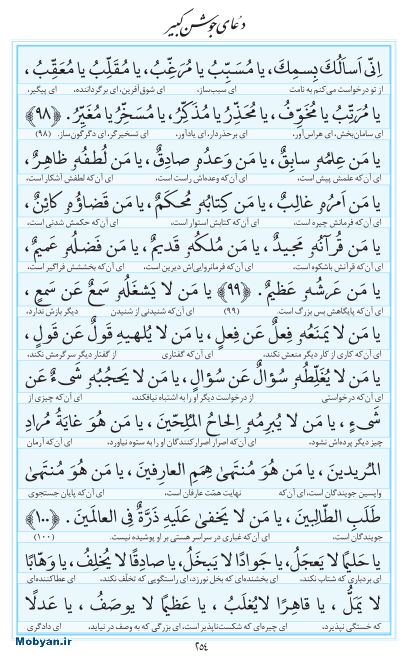 دعای جوشن کبیر
اِنّی اَسأَلُکَ بِسمِکَ، یا مُسَبِّبُ یا مُرَغِّبُ، یا مُقَلِّبُ یا مُعَقِّبُ،
از تو درخواست می‌کنم به نامت ای سبب‌ساز، ای شوق‌آفرین، ای برگرداننده، ای پیگیر،
یا مُرَتِّبُ یا مُخَوِّفُ، یا مُحَذِّرُ یا مُذَکِّرُ، یا مُسَخِّرُ یا مُغَیِّرُ. ﴿۹۸﴾
ای سامان‌بخش، ای هراس‌آور، ای برحذردار، ای یادآور، ای تسخیرگر، ای دگرگون‌ساز. (۹۸)
یا مَن عِلمُهُ سابِقٌ، یا مَن وَعدُهُ صادِقٌ، یا مَن لُطفُهُ ظاهِرٌ،
ای آن‌که علمش پیش است، ای آن‌که وعده‌اش راست است، ای آن‌که لطفش آشکار است،
یا مَن اَمرُهُ غالِبٌ، یا مَن کِتابُهُ مُحکَمٌ، یا مَن قَضاؤُهُ کائِنٌ،
ای آن‌که فرمانش چیره است، ای آن‌که کتابش استوار است، ای آن‌که حکمش شدنی است،
یا مَن قُرآنُهُ مَجیدٌ، یا مَن مُلکُهُ قَدیمٌ، یا مَن فَضلُهُ عَمیمٌ،
ای آن‌که قرآنش باشکوه است، ای آن‌که فرمانروایی‌اش دیرین است، ای آن‌که بخششش فراگیر است،
یا مَن عَرشُهُ عَظیمٌ. ﴿۹۹﴾ یا مَن لا یَشغَلُهُ سَمعٌ عَن سَمعٍ،
ای آن‌که پایگاهش بس بزرگ است. (۹۹) ای آن‌که شنیدنی از شنیدن دیگر بازش ندارد،
یا مَن لا یَمنَعُهُ فِعلٌ عَن فِعلٍ، یا مَن لا یُلهیهِ قَولٌ عَن قَولٍ،
ای آن‌که کاری از کار دیگر منعش نکند، ای آن‌که گفتاری از گفتار دیگر سرگرمش نکند،
یا مَن لا یُغَلِّطُهُ سُؤالٌ عَن سُؤالٍ، یا مَن لا یَحجُبُهُ شَیءٌ عَن
ای آن‌که درخواستی از درخواست دیگر او را به اشتباه نیافکند، ای آن‌که چیزی از
شَیءٍ، یا مَن لا یُبرِمُهُ اِلحاحُ المُلِحّینَ، یا مَن هُوَ غایَةُ مُرادِ
چیز دیگر پرده‌اش نشود، ای آن‌که اصرار اصرارکنندگان او را به ستوه نیاورد، ای آن‌که آرمان
المُریدینَ، یا مَن هُوَ مُنتَهیٰ هِمَمِ العارِفینَ، یا مَن هُوَ مُنتَهیٰ
واپسین جویندگان است، ای آن‌که نهایت همّت عارفان است، ای آن‌که پایان جستجوی
طَلَبِ الطّالِبینَ، یا مَن لا یَخفیٰ عَلَیهِ ذَرَّةٌ فِی العالَمینَ. ﴿۱۰۰﴾
جویندگان است، ای آن‌که غباری در سراسر هستی بر او پوشیده نیست. (۱۰۰)
یا حَلیمًا لا یَعجَلُ، یا جَوادًا لا یَبخَلُ، یا صادِقًا لا یُخلِفُ، یا وَهّابًا
ای بردباری که شتاب نکند، ای بخشنده‌ای که بخل نورزد، ای راستگویی که تخلّف نکند، ای عطاکننده‌ای
لا یَمَلُّ، یا قاهِرًا لایُغلَبُ، یا عَظیمًا لا یوصَفُ، یا عَدلًا
که خستگی نپذیرد، ای چیره‌ای که شکست‌ناپذیر است، ای بزرگی که به وصف در نیاید، ای دادگری
۲۵۴
Mobyan.ir